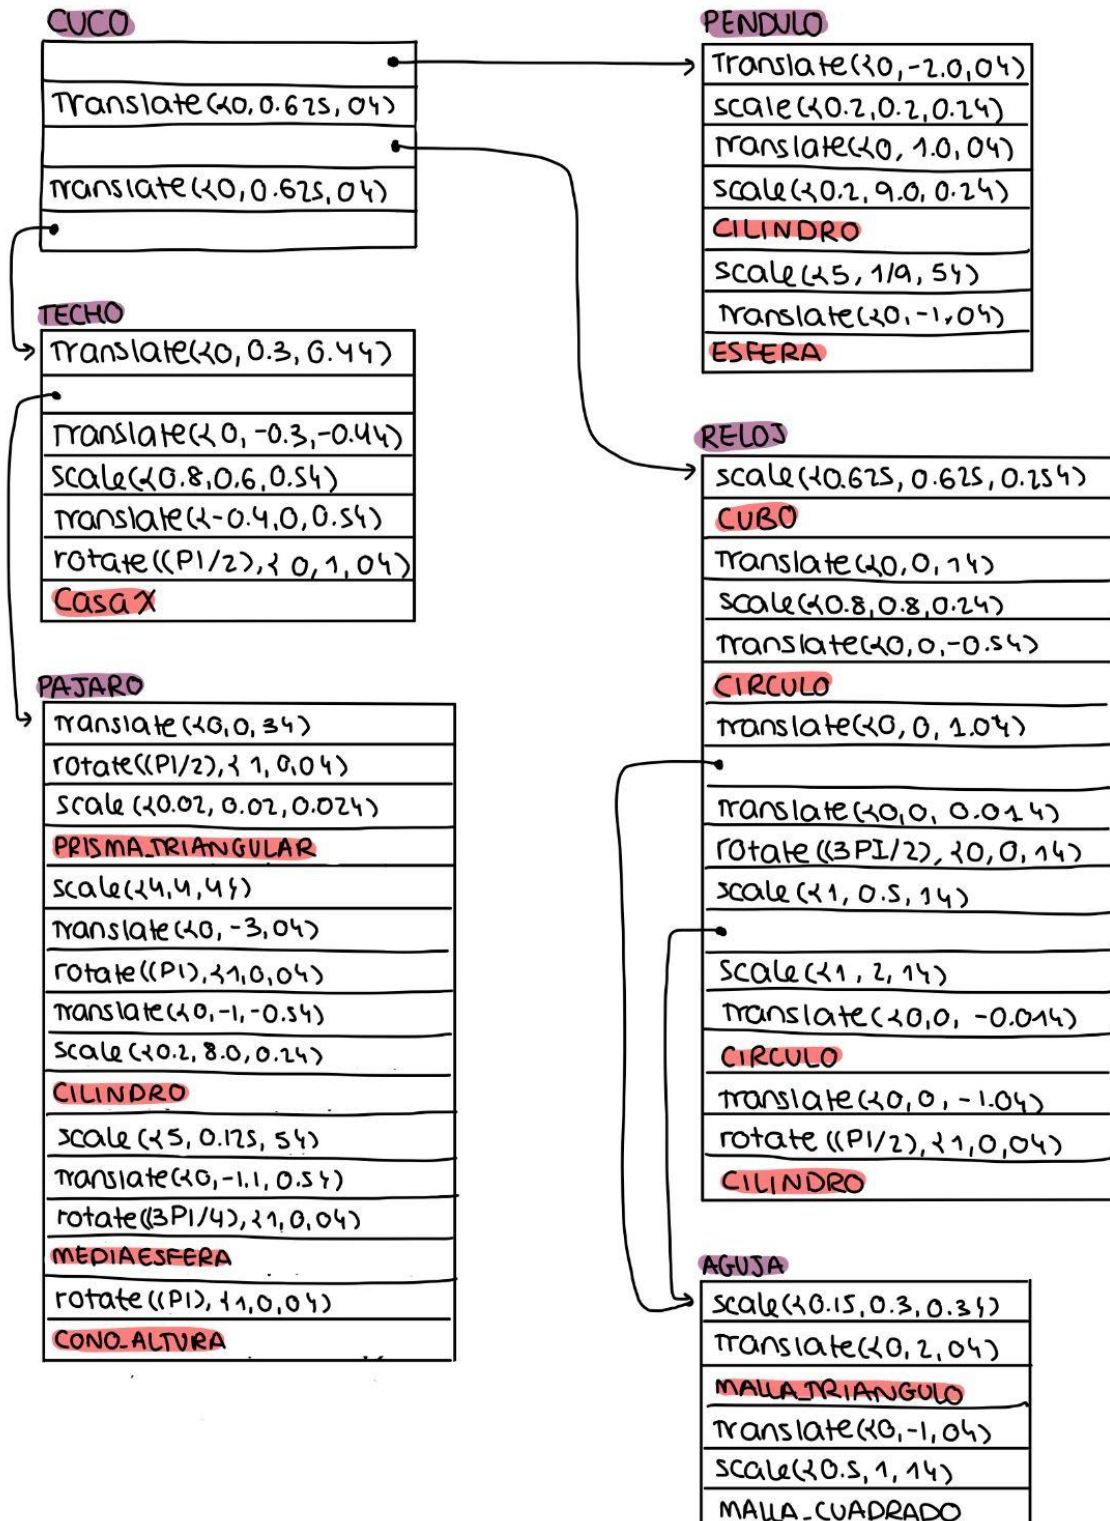 CUCO
Translate({0,0.625,0})
Translate({0,0.625,0})
TECHO
Translate({0,0.3,0.4})
Translate({0,-0.3,-0.4})
scale({0.8,0.6,0.5})
Translate({-0.4,0,0.5})
rotate((PI/2),{0,1,0})
CasaX
PAJARO
Translate({0,0,3})
rotate((PI/2),{1,0,0})
scale({0.02,0.02,0.02})
PRISMA_TRIANGULAR
scale({4,4,4})
Translate({0,-3,0})
rotate((PI),{1,0,0})
Translate({0,-1,-0.5})
scale({0.2,8.0,0.2})
CILINDRO
scale({5,0.125,5})
Translate({0,-1.1,0.5})
rotate((3PI/4),{1,0,0})
MEDIAESFERA
rotate((PI),{1,0,0})
CONO_ALTURA
PENDULO
Translate({0,-2.0,0})
scale({0.2,0.2,0.2})
Translate({0,1.0,0})
scale({0.2,9.0,0.2})
CILINDRO
scale({5,1/9,5})
Translate({0,-1,0})
ESFERA
RELOJ
scale({0.625,0.625,0.25})
CUBO
Translate({0,0,1})
scale({0.8,0.8,0.2})
Translate({0,0,-0.5})
CIRCULO
Translate({0,0,1.0})
Translate({0,0,0.01})
rotate((3PI/2),{0,0,1})
scale({1,0.5,1})
scale({1,2,1})
Translate({0,0,-0.01})
CIRCULO
Translate({0,0,-1.0})
rotate((PI/2),{1,0,0})
CILINDRO
AGUJA
scale({0.15,0.3,0.3})
Translate({0,2,0})
MALLA_TRIANGULO
Translate({0,-1,0})
scale({0.5,1,1})
MALLA_CUADRADO